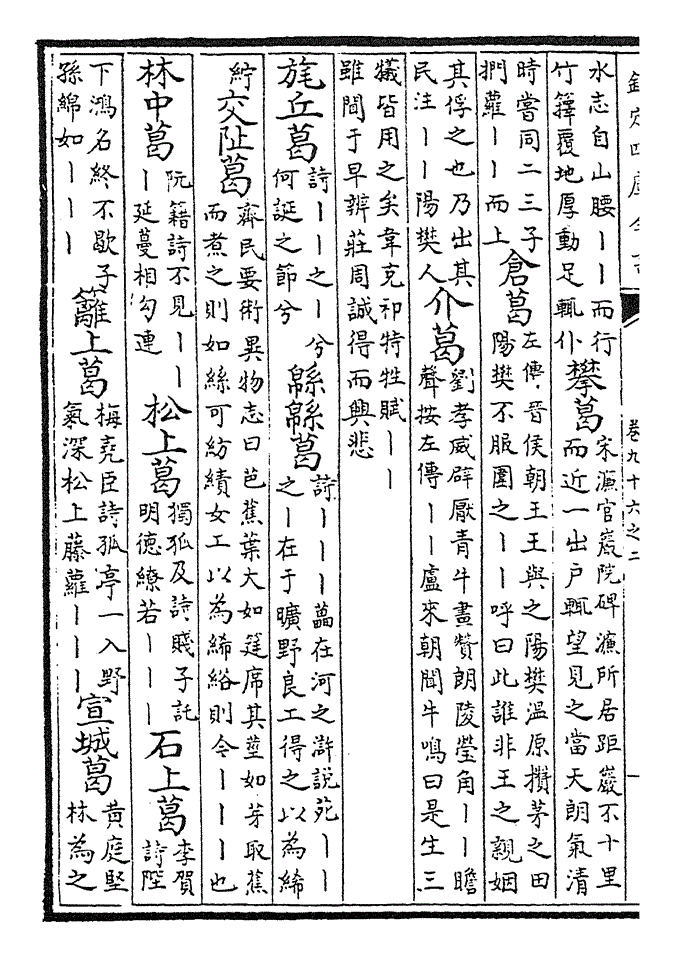 欽定四庫全書
卷九十六之二
水志自山腰丨丨而行
竹籜覆地厚動足輒仆
攀葛
宋濂官巖院碑濂所居距巖不十里
而近一出户輒望見之當天朗氣清
時嘗同二三子
捫蘿丨丨而上
倉葛
左傳晉侯朝王王與之陽樊溫原攢茅之田
陽樊不服圍之丨丨呼曰此誰非王之親姻
其俘之也乃出其
民注丨丨陽樊人
介葛
劉孝威辟厭青牛畫贊朗陵瑩角丨丨瞻
聲按左傳丨丨盧來朝聞牛鳴曰是生三
犧皆用之矣韋克祁特牲賦丨丨
雖聞于早辨莊周誠得而興悲
旄丘葛
詩丨丨之丨兮
何誕之節兮
緜緜葛
詩丨丨丨藟在河之滸説苑丨丨
之丨在于曠野良工得之以為絺
紵
交阯葛
齊民要術異物志曰芭蕉葉大如筵席其莖如芋取蕉
而煮之則如絲可紡績女工以為絺綌則今丨丨丨也
林中葛
阮籍詩不見丨丨
丨延蔓相勾連
松上葛
獨孤及詩賤子託
明德繚若丨丨丨
石上葛
李賀
詩陛
下鴻名終不歇子
孫綿如丨丨丨
籬上葛
梅堯臣詩孤亭一入野
氣深松上藤蘿丨丨丨
宣城葛
黄庭堅
林為之